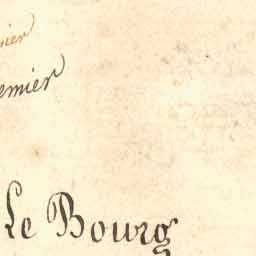 nier
emier
Le Bourg